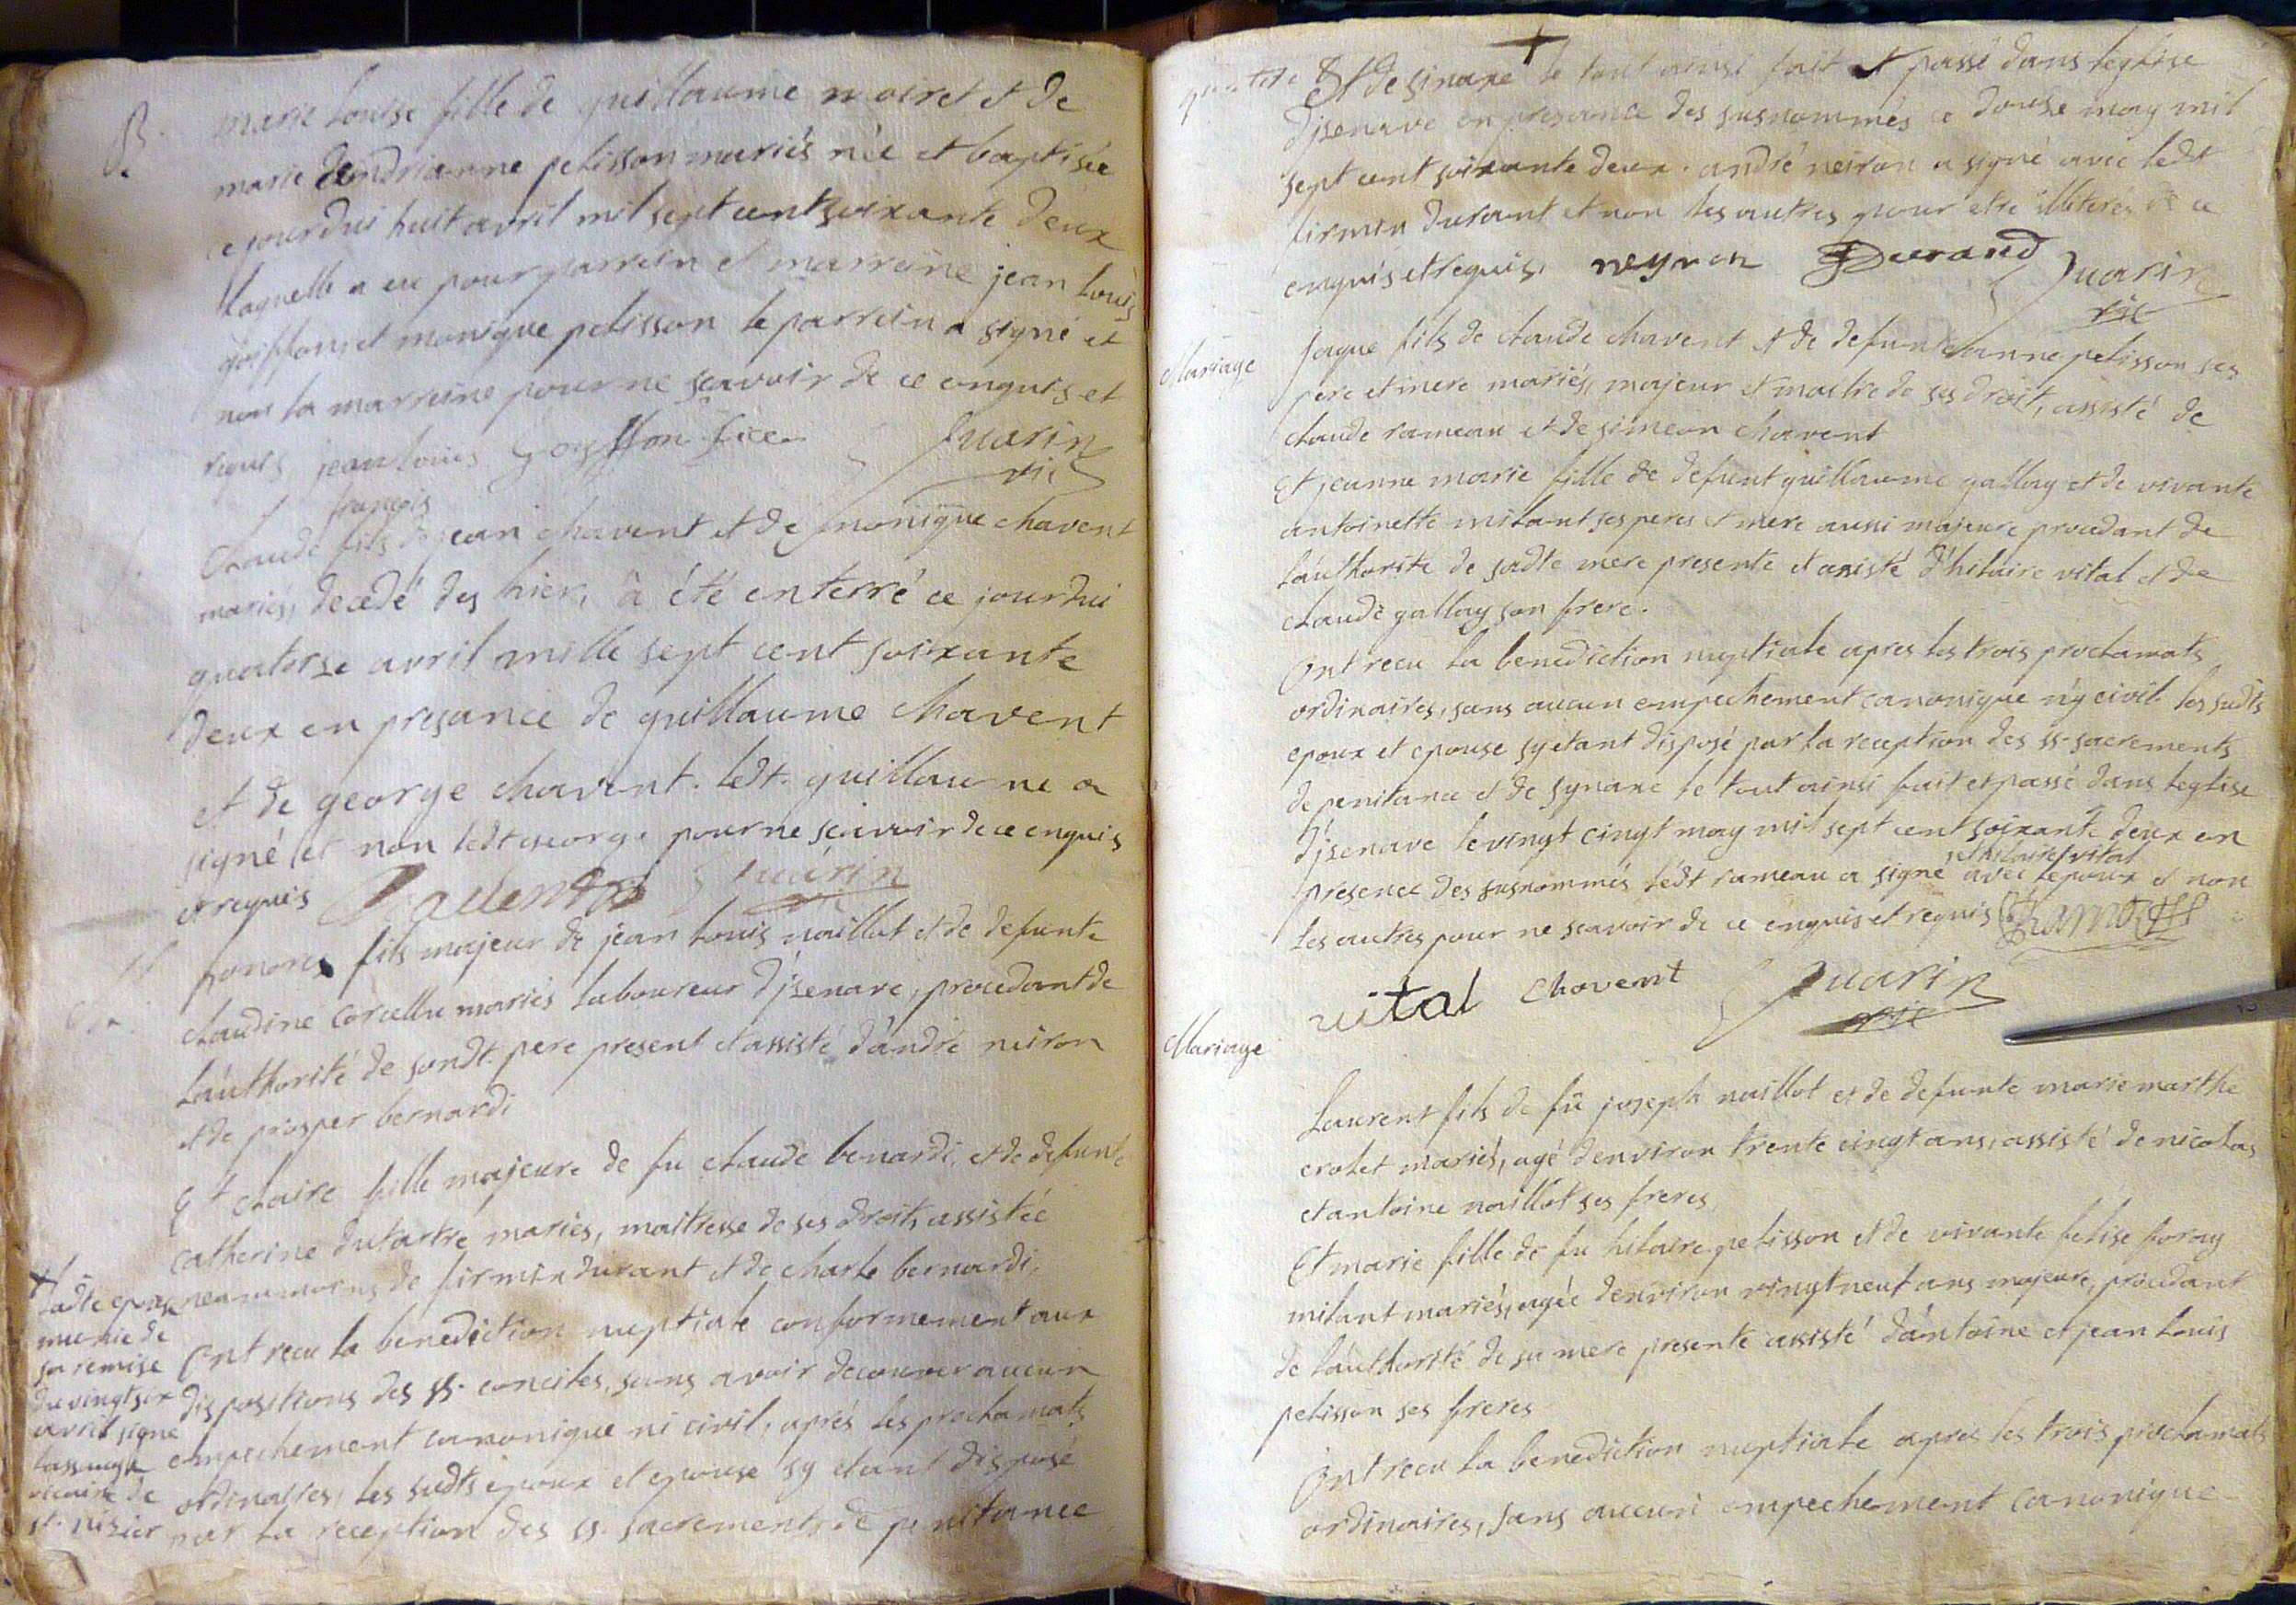 B.
marie louise fille de guillaume noiret et de
marie andrianne pelisson mariés née et baptisée
ce jourdui huit avril mil sept cent soixante deux
laquelle a eu pour parrein et marreine jean louis
goiffon et monique pelisson le parrein a signé et
non la marreine pour ne scavoir de ce enquis et
requis jean louis goyffon
Guarin
vic
françois
Claude fils de jean chavent et de monique chavent
mariés, decedé des hier, à été enterré ce jourdui
quatorse avril mille sept cent soixante
deux en presance de guillaume chavent
et de george chavent. ledt. guillaume a
signé et non ledt george pour ne scavoir de ce enquis
et requis
Guérin
vic
honoré fils majeur de jean louis naillot et de defunte
claudine corcellu mariés laboureur d'jsenave, procedant de
l'authorité de sondt. pere present et assisté d'andré neiron
et de prosper bernardi
Et claire fille majeure de fu claude benardi, et de defunte
catherine dutartre mariés, maitresse de ses droits assistée
neanmoins de firmin durant et de charle bernardi,
Ont recu la benediction nuptiale conformement aux
dispositions des ss. conciles, sans avoir decouver aucun
empechement canonique ni civil, aprés les proclamats
ordinaires, les sudts époux et epouse sy etant disposé
par la reception des ss. sacrements de penitance
+ ladte epouse
munie de
sa remise
du vingt six
avril signé
vicaire de
st. nisier
Et de sinaxe + le tout ainsi fait et passé dans leglise
d'jsenave en presance des susnommés ce douse may mil
sept cent soixante deux. andré neiron a signé avec ledt
firmin durant et non les autres pour etre illiterés de ce
enquis et requis. neyron Durand
Guarin
vic
Mariage
Jaque fils de claude chavent et de defunte anne pelisson ses
pere et mere mariés, majeur et maitre de ses droit, assisté de
claude rameau et de simeon chavent
Et jeanne marie fille de defunt guillaume gallay et de vivante
antoinette milant ses peres et mere aussi majeure procedant de
l'authorite de sadte mere presente et assisté d'hilaire vital et de
claude gallay son frere.
Ont recu la benediction nuptiale apres les trois proclamats
ordinaires, sans aucun empechement canonique n'y civil. les sudts
epoux et epouse sy etant disposé par la reception des ss. sacrements
de penitance et de synaxe le tout ainsi fait et passé dans leglise
d'jsenave le vingt cingt may mil sept cent soixante deux en
et hilaire vital
presence des susnommés ledt rameau a signé avec lepoux et non
les autres pour ne scavoir de ce enquis et requis
vital chovent Guarin
vic
Mariage
Laurent fils de fû joseph naillot et de defunte marie marthe
crolet mariés, agé denviron trente cingt ans, assisté de nicolas
et antoine naillot ses freres
Et marie fille de fu hilaire pelisson et de vivante felise foray
milant mariés, agée denviron vingt neuf ans majeure, procedant
de l'authorité de sa mere presente assisté d'antoine et jean louis
pelisson ses freres
Ont recu la benediction nuptiale apres les trois proclamats
ordinaires, sans aucun empechement canonique